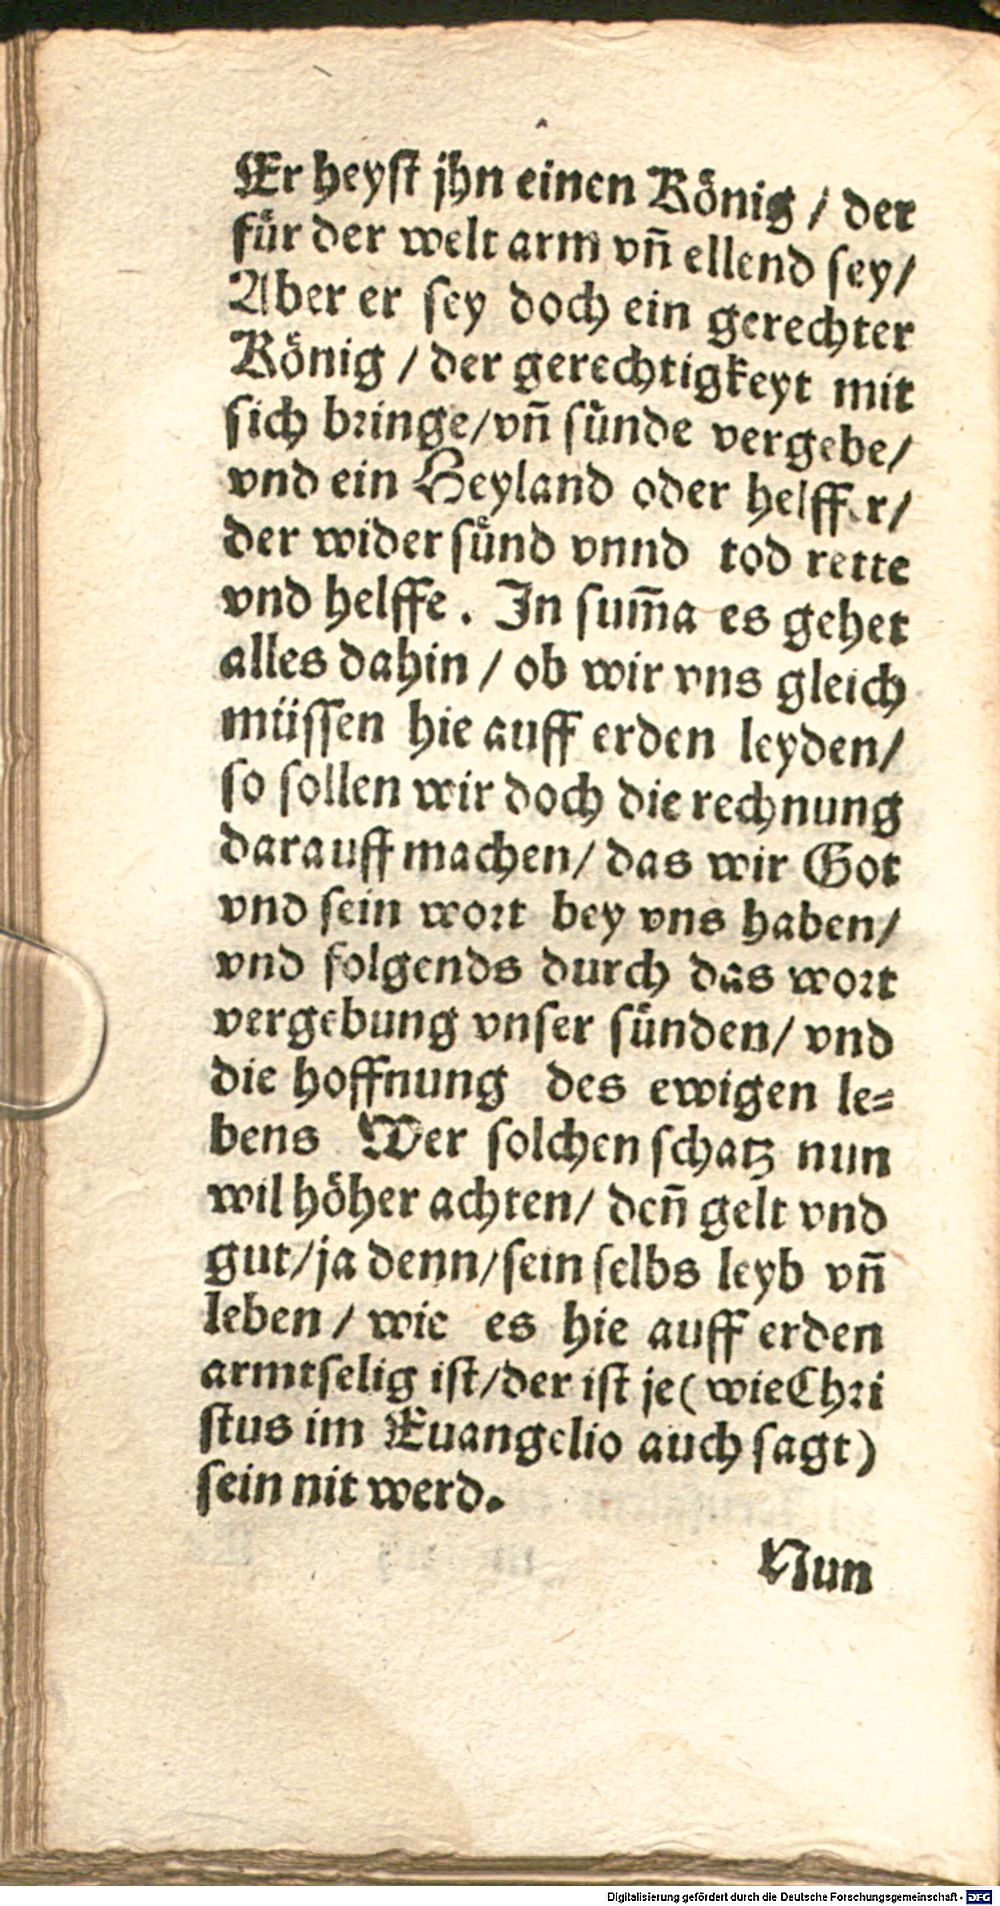 Er heyst jhn einen König / der
für der welt arm vñ ellend sey/
Aber er sey doch ein gerechter
König / der gerechtigkeyt mit
sich bringe/vñ sünde vergebe/
vnd ein Heyland oder helffer/
der wider sünd vnnd tod rette
vnd helffe. In sum̃a es gehet
alles dahin / ob wir vns gleich
müssen hie auff erden leyden/
so sollen wir doch die rechnung
darauff machen/ das wir Got
vnd sein wort bey vns haben/
vnd folgends durch das wort
vergebung vnser sünden/ vnd
die hoffnung des ewigen le=
bens Wer solchen schatz nun
wil höher achten/ deñ gelt vnd
gut/ja denn/sein selbs leyb vñ
leben / wie es hie auff erden
armtselig ist/der ist je( wie Chri
stus im Euangelio auch sagt)
sein nit werd.
Nun
Digitalisierung gefördert durch die Deutsche Forschungsgemeinschaft - DFG